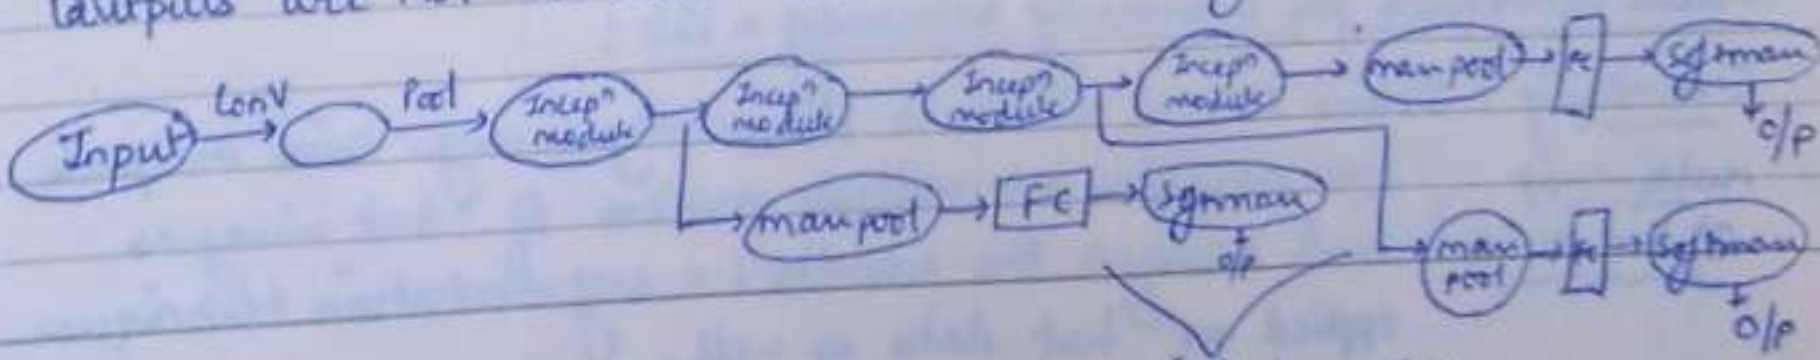 are
Input
Conv
Pool
Incepⁿ
module
Incepⁿ
module
Incepⁿ
module
Incepⁿ
module
maxpool
FC
Softmax
O/P
maxpool
FC
Softmax
O/P
max
pool
FC
Softmax
O/P